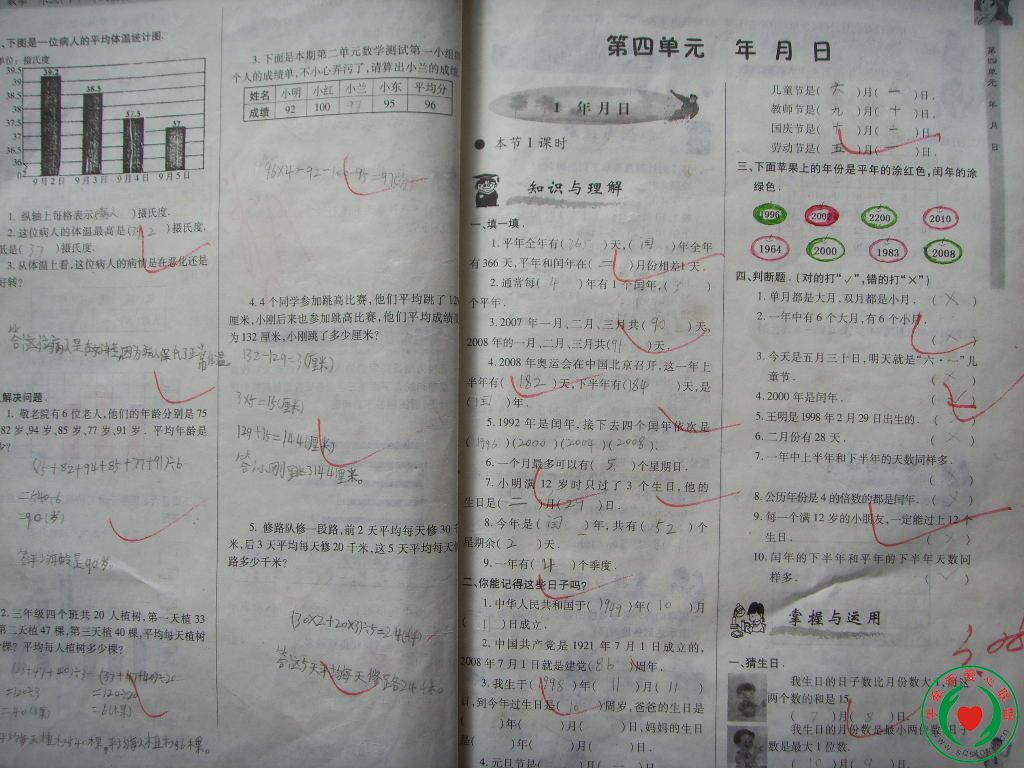 、下图是一位病人的平均体温统计图.
单位：摄氏度
39.5
39
38.5
38
37.5
37
36.5
36
0
39.2
38.5
37.5
37
9月2日 9月3日 9月4日 9月5日
1. 纵轴上每格表示(病人)摄氏度.
2. 这位病人的体温最高是(39.2)摄氏度,
低是(37)摄氏度.
3. 从体温上看,这位病人的病情是在恶化还是
好转?
解决问题.
1. 敬老院有6位老人,他们的年龄分别是75
82岁,94岁,85岁,77岁,91岁. 平均年龄是
少?
(75+82+94+85+77+91)÷6
=540÷6
=90(岁)
2. 三年级四个班共20人植树,第一天植33
第二天植47棵,第三天植40棵,平均每天植树
棵? 平均每人植树多少棵?
(33+47+40)÷3 (33+47+40)÷20
=120÷3 =120÷20
=40(棵) =6(棵)
3. 下面是本期第二单元数学测试第一小组
个人的成绩单,不小心弄污了,请算出小兰的成绩
姓名 小明 小红 小兰 小东 平均分
成绩 92 100 97 95 96
96×4-92-100-95=97(分)
4. 4个同学参加跳高比赛,他们平均跳了129
厘米,小刚后来也参加跳高比赛,他们平均成绩变
为132厘米,小刚跳了多少厘米?
132-129=3(厘米)
3×5=15(厘米)
129+15=144(厘米)
答:小刚跳了144厘米。
5. 修路队修一段路,前2天平均每天修30千
米,后3天平均每天修20千米,这5天平均每天修
路多少千米?
(30×2+20×3)÷5=24(千米)
答:这5天平均每天修路24千米。
第四单元 年月日
1 年月日
● 本节1课时
知识与理解
一、填一填.
1. 平年全年有(365)天,(闰)年全年
有366天,平年和闰年在(二)月份相差1天.
2. 通常每(4)年有1个闰年,(3)
个平年.
3. 2007年一月、二月、三月共(90)天,
2008年的一月、二月、三月共(91)天.
4. 2008年奥运会在中国北京召开,这一年上
半年有(182)天,下半年有(184)天,是
(闰)年.
5. 1992年是闰年,接下去四个闰年依次是
(1996)(2000)(2004)(2008).
6. 一个月最多可以有(5)个星期日.
7. 小明满12岁时只过了3个生日,他的
生日是(二)月(29)日.
8. 今年是(闰)年,共有(52)个
星期余(2)天.
9. 一年有(4)个季度.
二、你能记得这些日子吗?
1. 中华人民共和国于(1949)年(10)月
(1)日成立.
2. 中国共产党是1921年7月1日成立的,
2008年7月1日就是建党(86)周年.
3. 我生于(1998)年(11)月(11)
日,到今年过生日是(10)周岁,爸爸的生日是
( )年( )月( )日,妈妈的生日是
( )年( )月( )日.
4. 元旦节是(一)月(一)日.
儿童节是(六)月(一)日.
教师节是(九)月(十)日.
国庆节是(十)月(一)日.
劳动节是(五)月(一)日.
三、下面苹果上的年份是平年的涂红色,闰年的涂
绿色.
1996 2002 2200 2010
1964 2000 1983 2008
四、判断题.(对的打“✓”,错的打“×”)
1. 单月都是大月,双月都是小月. (×)
2. 一年中有6个大月,有6个小月.
(×)
3. 今天是五月三十日,明天就是“六·一”儿
童节. (×)
4. 2000年是闰年. (✓)
5. 王明是1998年2月29日出生的. (×)
6. 二月份有28天. (×)
7. 一年中上半年和下半年的天数同样多.
8. 公历年份是4的倍数的都是闰年. (×)
9. 每一个满12岁的小朋友,一定能过上12个
生日. (×)
10. 闰年的下半年和平年的下半年天数同
样多. (✓)
掌握与运用
一、猜生日.
我生日的日子数比月份数大1,而这
两个数的和是15.
(7)月(8)日.
我生日的月份数是最小两位数,日子
数是最大1位数.
(10)月(9)日.
第四单元 年 月 日